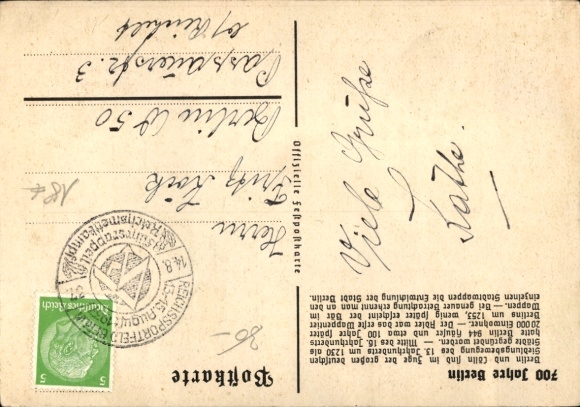 700 Jahre Berlin
Berlin und Cölln sind im Zuge der großen deutschen
Siedlungsbewegung des 13. Jahrhunderts um 1230 als
Städte gegründet worden. — Mitte des 16. Jahrhunderts
hatte Berlin 944 Häuser und etwa 100 Jahre später
20000 Einwohner. — Der Adler war das erste Wappentier
Berlins um 1253, wenig später erscheint der Bär im
Wappen. — Bei genauer Betrachtung erkennt man an den
einzelnen Stadtwappen die Entwicklung der Stadt Berlin.
Viele Grüße
Käthe.
Offizielle Festpostkarte
Postkarte
Deutsches Reich
5
5
REICHSSPORTFELD
Reichswettkämpfe
14.8.
20.–
18.–
Herrn
Fritz
Berlin W 50
Passauerstr. 3
b/